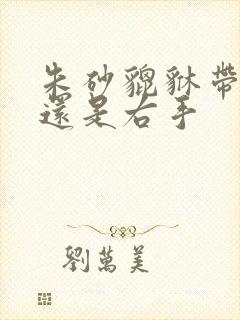 朱砂貔貅帶
還是右手
劉萬美